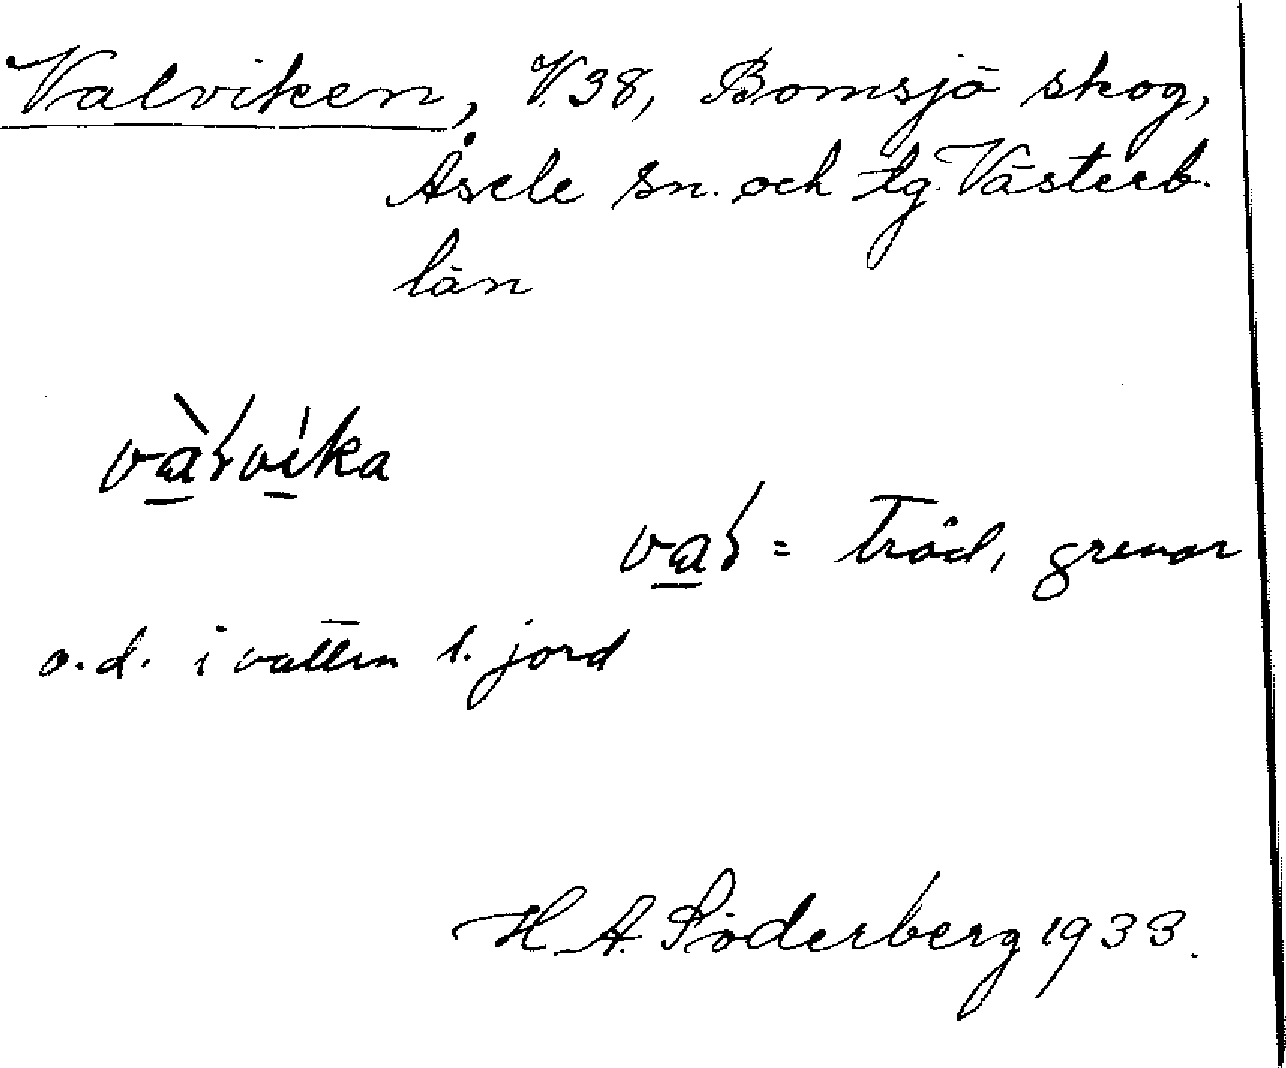 Valviken, V.38, Bomsjö skog,
Åsele sn. och tg. Västerb.
län
vàɽvíka
vaɽ = träd, grenar
o.d. i vatten l. jord
H. A. Söderberg 1933.